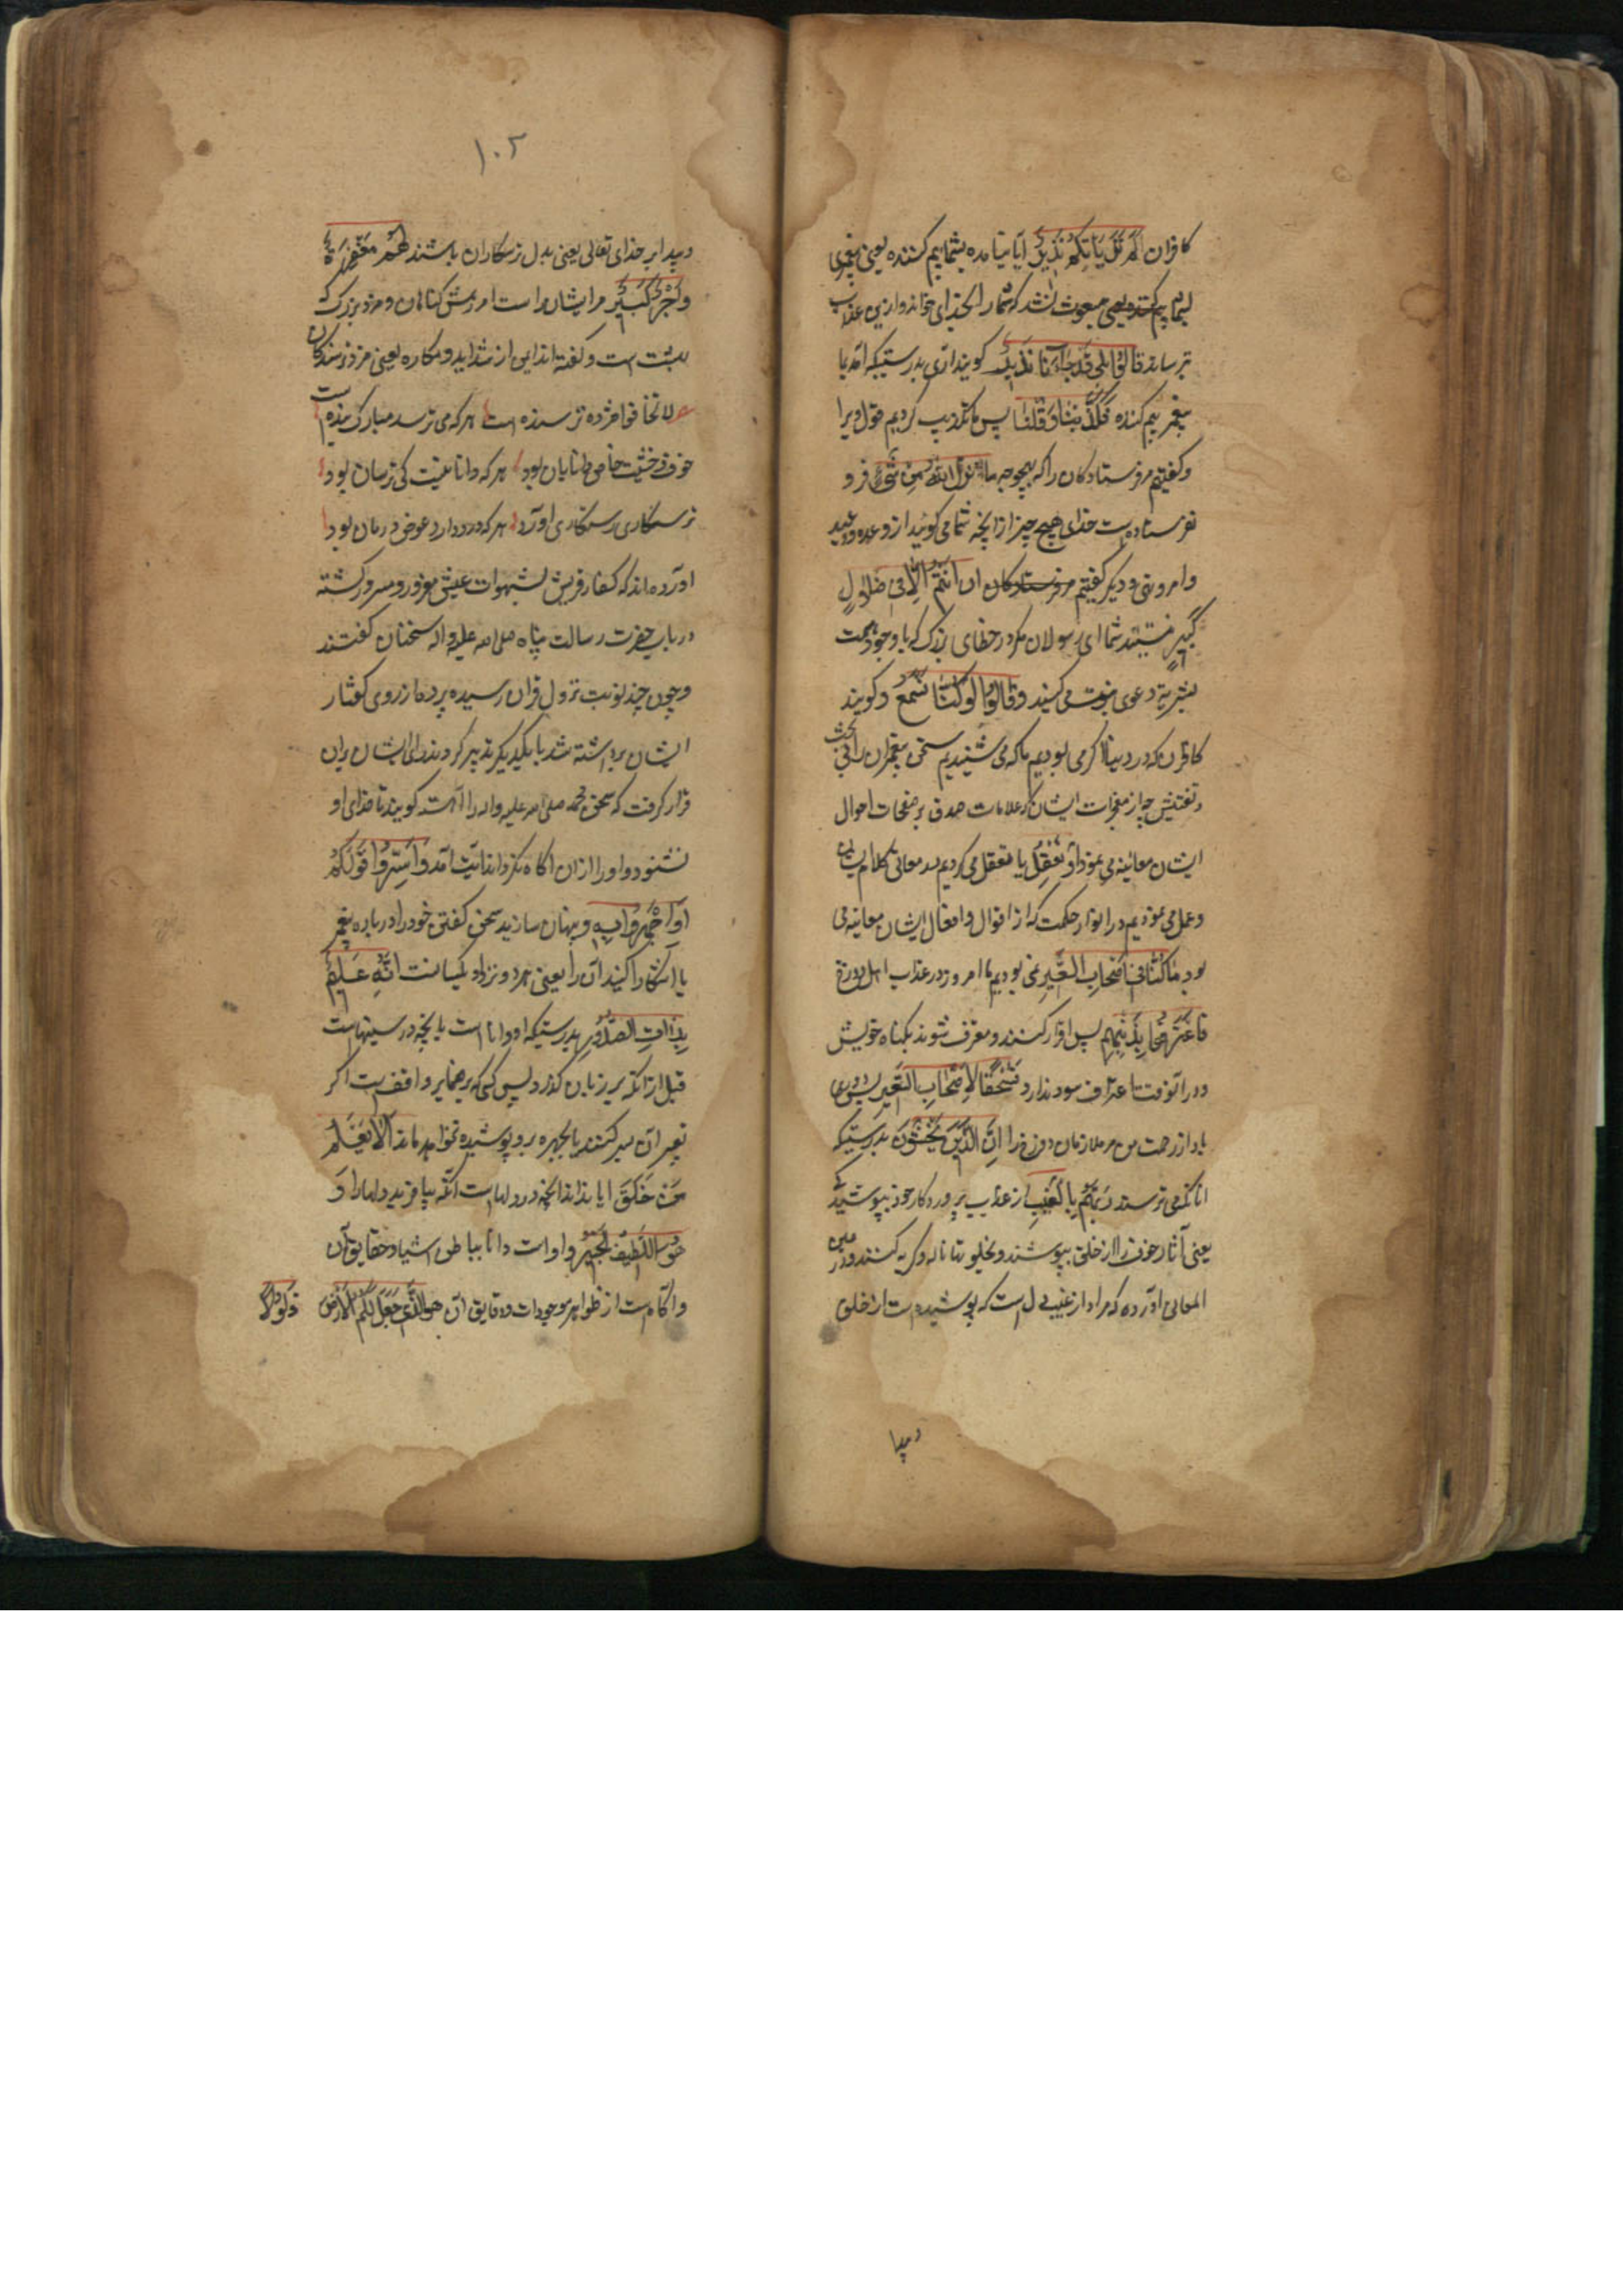 کافران اَلَمْ یَأتِکُمْ نَذِیرٌ ایا نیامده بشما بیم کننده یعنی پیغمبری
بیم کننده یعنی مبعوث نشد که شما را بخدای خواند و ازین عذاب
ترساند قالُوا بَلی قَدْ جاءَنا نَذِیرٌ گویند اری بدرستیکه آمد بما
پیغمبر بیم کننده فَکَذَّبْنا وَقُلْنا پس ما تکذیب کردیم قول ویرا
وکفتیم مر فرستادکان را که بهیچوجه ما نَزَّلَ اللّهُ مِنْ شَیْءٍ فرو
نفرستاده است خدای هیچ چیز از انچه شما می کوئید از وعده و وعید
وامر ونهی و دیکر کفتیم مر فرستادکان ان اَنْتُمْ اِلّا فی ضَلالٍ
کَبیرٍ نیستید شما ای رسولان مکر در خطای بزرک که با وجود سمت
بشریة دعوی نبوت می کنید وَقالُوا لَوْ کُنّا نَسْمَعُ وکویند
کافران که در دنیا اکر می بودیم ما که می شنیدیم سخن پیغمبران را بی بحث
وتفتیش چه از معجزات ایشان علامات صدق بر صفحات احوال
ایشان معاینه می نمود اَوْ نَعْقِلُ یا تعقل می کردیم معانی کلام
وعمل می نمودیم در انوار حکمت که از اقوال وافعال ایشان معاینه می
بود ما کُنّا فی اَصْحابِ السَّعیرِ نمی بودیم ما امروز در عذاب اهل دوزخ
فَاعْتَرَفُوا بِذَنْبِهِمْ پس اقرار کنند ومعترف شوند بکناه خویش
ودر انوقت اعتراف سود ندارد فَسُحْقًا لِاَصْحابِ السَّعیرِ پس دوری
باد از رحمت من مر ملازمان دوزخ را اِنَّ الَّذینَ یَخْشَوْنَ بدرستیکه
انانکه می ترسند رَبَّهُمْ بِالْغَیْبِ از عذاب پروردکار خود بپوشیدکی
یعنی آثار خوف را از خلق بپوشند وبخلوتها ناله وکریه کنند ودر عین
المعانی اورده که مراد از غیب دل است که پوشیده است از خلق
دیدا
۱۰۲
دیدار خدای تعالی یعنی بدل ترسکاران باشند لَهُمْ مَغْفِرَةٌ
وَاَجْرٌ کَبیرٌ مر ایشان راست امرزش کناهان ومزد بزرک که
بهشت است وکفته اند ایمن از شداید ومکاره یعنی مزد ترسندکان
لا تخافوا مژده ترسنده است هر که می ترسد مبارک بنده است
خوف وخشیت خاص دانایان بود هر که دانا نیست کی ترسان بود
ترسکاری رستکاری اورد هر که درد دارد عوض درمان بود
اورده اند که کفار قریش بشهوات عیش مغرور ومسرور کشته
درباب حضرت رسالت پناه صلی الله علیه واله سخنان کفتند
وچون چند نوبت نزول قران رسیده پرده از روی کفتار
ایشان برداشته شد با یکدیکر تدبیر کردند رای ایشان بران
قرار کرفت که سخن محمد صلی الله علیه واله را اهسته کویند تا خدای او
نشنود واو را ازان اکاه نکرداند آیت امد وَاَسِرُّوا قَوْلَکُمْ
اَوِ اجْهَرُوا بِه وپنهان سازید سخن کفتن خود را درباره پیغمبر
یا اشکارا کنید ان را یعنی هر دو نزد او یکسانست اِنَّهُ عَلیمٌ
بِذاتِ الصُّدُورِ بدرستیکه او داناست بانچه در سینهاست
قبل از انکه بر زبان کذرد پس کسی که بر ضمایر واقف است اکر
تعبیر ان بسر کنند یا بجهر برو پوشیده نخواهد ماند اَلا یَعْلَمُ
مَنْ خَلَقَ ایا نداند انچه در دلهاست انکه بیافرید دلها را وَ
هُوَ اللَّطیفُ الْخَبیرُ واوست دانا بباطن اشیا وحقایق آن
واکاه است از ظواهر موجودات ودقایق ان هُوَ الَّذی جَعَلَ لَکُمُ الْاَرْضَ ذَلُولًا